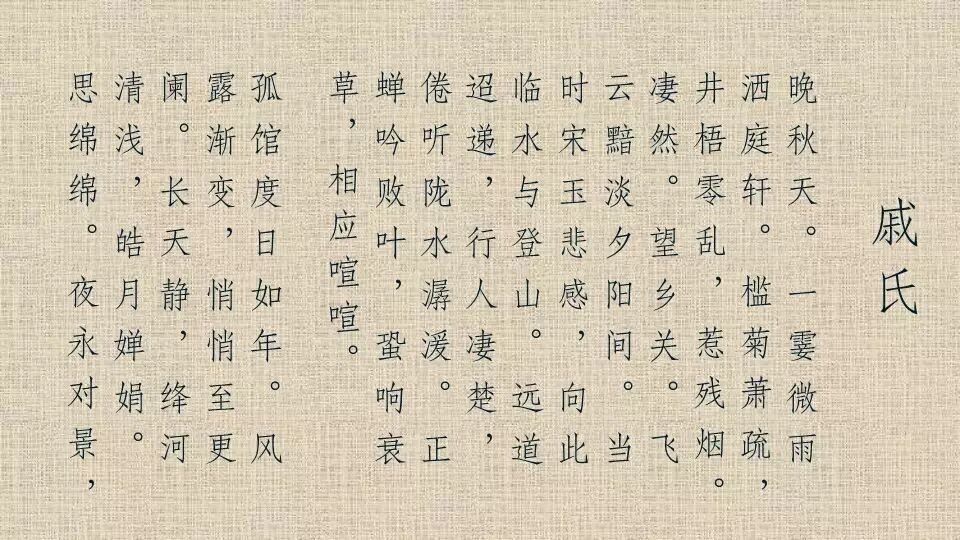 戚氏
晚秋天。一霎微雨
洒庭轩。槛菊萧疏，
井梧零乱，惹残烟。
凄然。望乡关。飞
云黯淡夕阳间。当
时宋玉悲感，向此
临水与登山。远道
迢递，行人凄楚，
倦听陇水潺湲。正
蝉吟败叶，蛩响衰
草，相应喧喧。
孤馆度日如年。风
露渐变，悄悄至更
阑。长天静，绛河
清浅，皓月婵娟。
思绵绵。夜永对景，